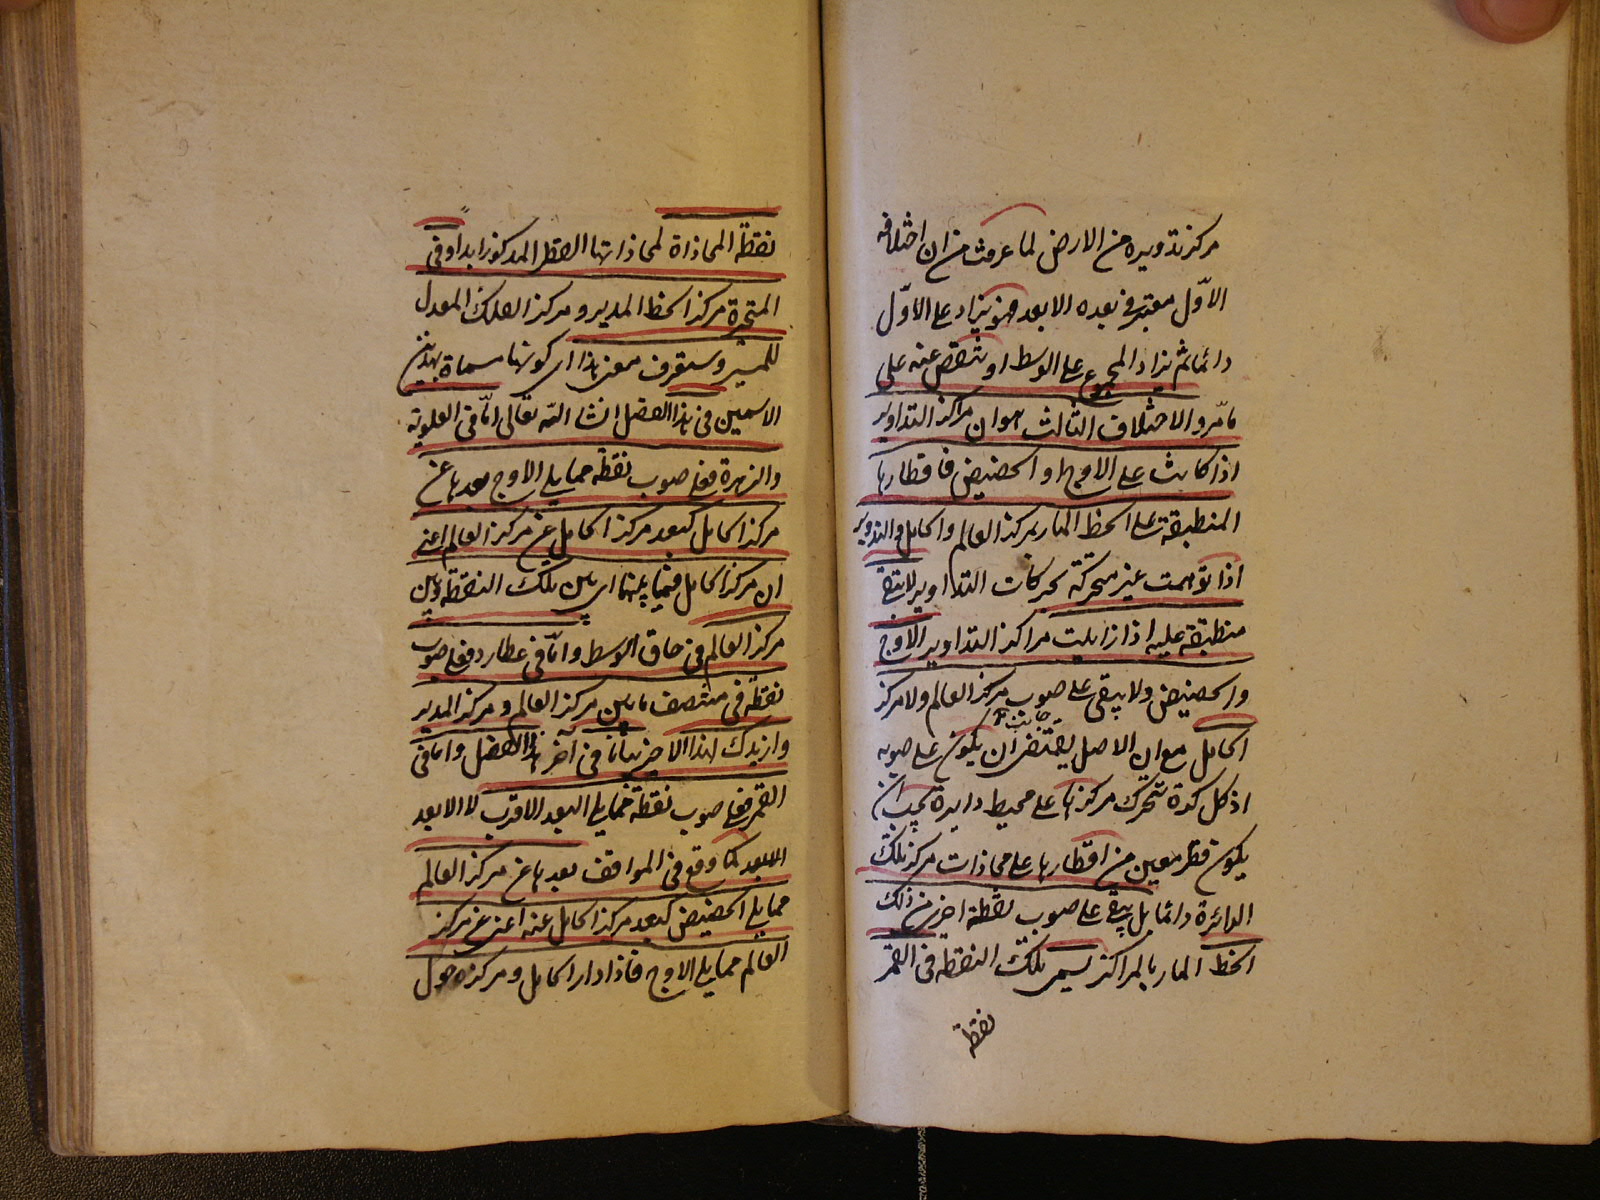 مركز تدويره من الارض لما عرفت من ان اختلافه
الاوّل معتبر فى بعده الابعد فهو يزاد على الاوّل
دائما ثم يزاد المجموع على الوسط او ينقص عنه على
ما مرّ والاختلاف الثالث هو ان مراكز التداوير
اذا كانت على الاوج او الحضيض فاقطارها
المنطبقة على الخط المار بمركز العالم والحامل والتدوير
اذا توهمت غير متحركة بحركات التداوير لا تبقى
منطبقة عليه اذا زايلت مراكز التداوير الاوج
والحضيض ولا يبقى على صوب مركز العالم ولا مركز
الحامل مع ان الاصل يقتضى ان يكون على صوبه
جانب
اذ كل كرة تتحرك مركزها على محيط دايرة يجب ان
يكون قطر معين من اقطارها على محاذات مركز تلك
الدائرة دائما بل يبقى على صوب نقطة اخرى من ذلك
الخط المار بالمراكز يسمى تلك النقطة فى القمر
نقطة
نقطة المحاذاة لمحاذاتها القطر المذكور ابدا وفى
المتحيرة مركز الخط المدير ومركز الفلك المعدل
للمسير وستعرف معنى هذا اى كونها مسماة بهذين
الاسمين فى هذا الفصل انشا الله تعالى امّا فى العلوية
والزهرة فعلى صوب نقطة مما يلى الاوج بعدها عن
مركز الحامل كبعد مركز الحامل عن مركز العالم اعنى
ان مركز الحامل فيما بينها اى بين تلك النقطة وبين
مركز العالم فى حاق الوسط وامّا فى عطارد فعلى صوب
نقطة فى منتصف ما بين مركز العالم ومركز المدير
وازيدك لهذا الامر بيانا فى آخر هذا الفصل واما فى
القمر فعلى صوب نقطة مما يلى البعد الاقرب لا الابعد
الابعد كما وقع فى المواقف بعدها عن مركز العالم
مما يلى الحضيض كبعد مركز الحامل عنه اعنى عن مركز
العالم مما يلى الاوج فاذا دار الحامل ومركزه حول